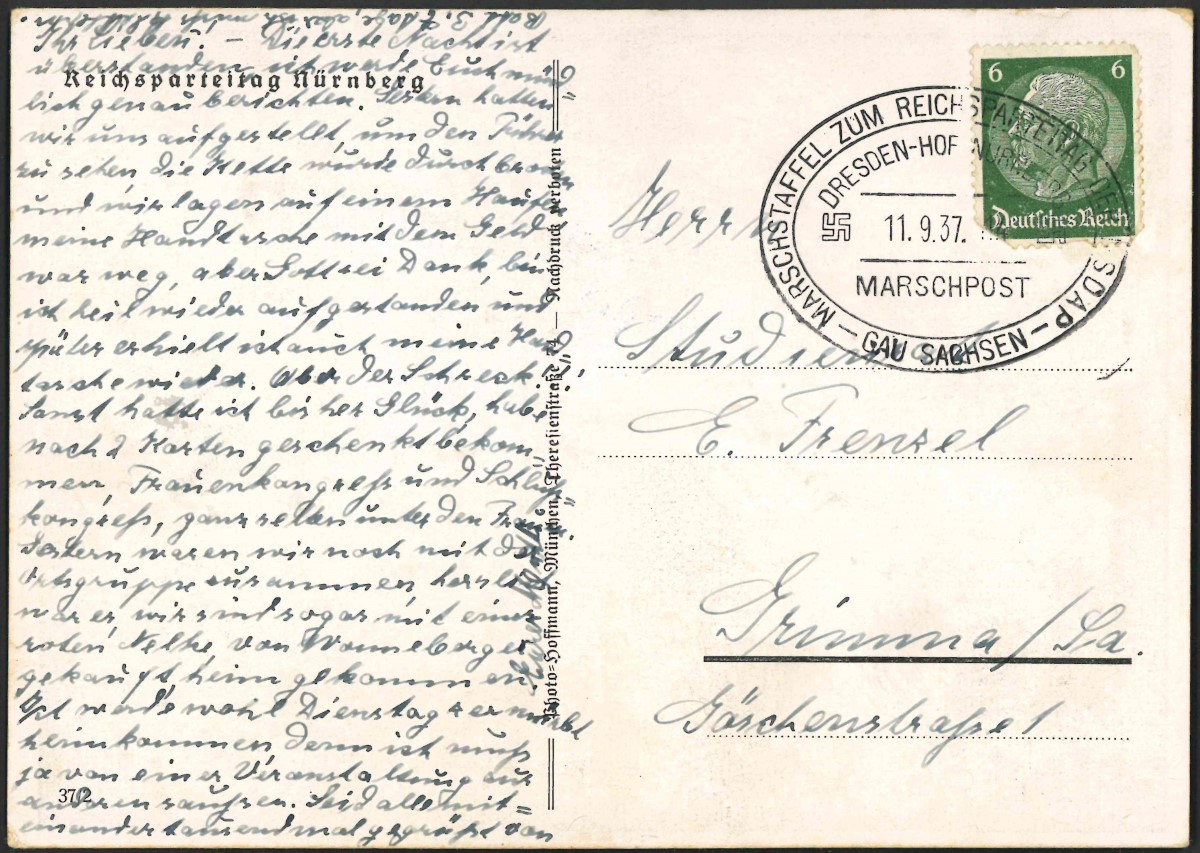 Ihr Lieben! – Die erste Nacht ist
überstanden, ich werde Euch münd
lich genau berichten. Gestern hatten
wir uns aufgestellt, um den Führer
zu sehen, die Kette wurde durchbrochen
und wir lagen auf einem Haufen
meine Handtasche mit dem Geld
war weg, aber Gott sei Dank, bin
ich heil wieder aufgestanden und
später erhielt ich auch meine Hand
tasche wieder. Aber der Schreck!
Sonst hatte ich bisher Glück, habe
noch 2 Karten geschenkt bekom
men, Frauenkongreß und Schluß
kongreß, ganz selten unter den
Gestern waren wir noch mit der
Ortsgruppe zusammen, herrlich
war es, wir sind sogar mit einer
roten Nelke von Wonneberger
gekauft heimgekommen.
Ich werde wohl Dienstag
heimkommen, denn ich muß
ja von einer Veranstaltung zur
anderen sausen. Seid alle mit=
einander tausendmal gegrüßt von
Reichsparteitag Nürnberg
37/2
Photo-Hoffmann, München, Theresienstraße 74 — Nachdruck verboten
6 6
Deutsches Reich
MARSCHSTAFFEL ZUM REICHSPARTEITAG DER NSDAP – GAU SACHSEN –
DRESDEN-HOF-NÜRNBERG
11.9.37.
MARSCHPOST
Herrn
E. Frenzel
Grimma/Sa.
Göschenstraße 1